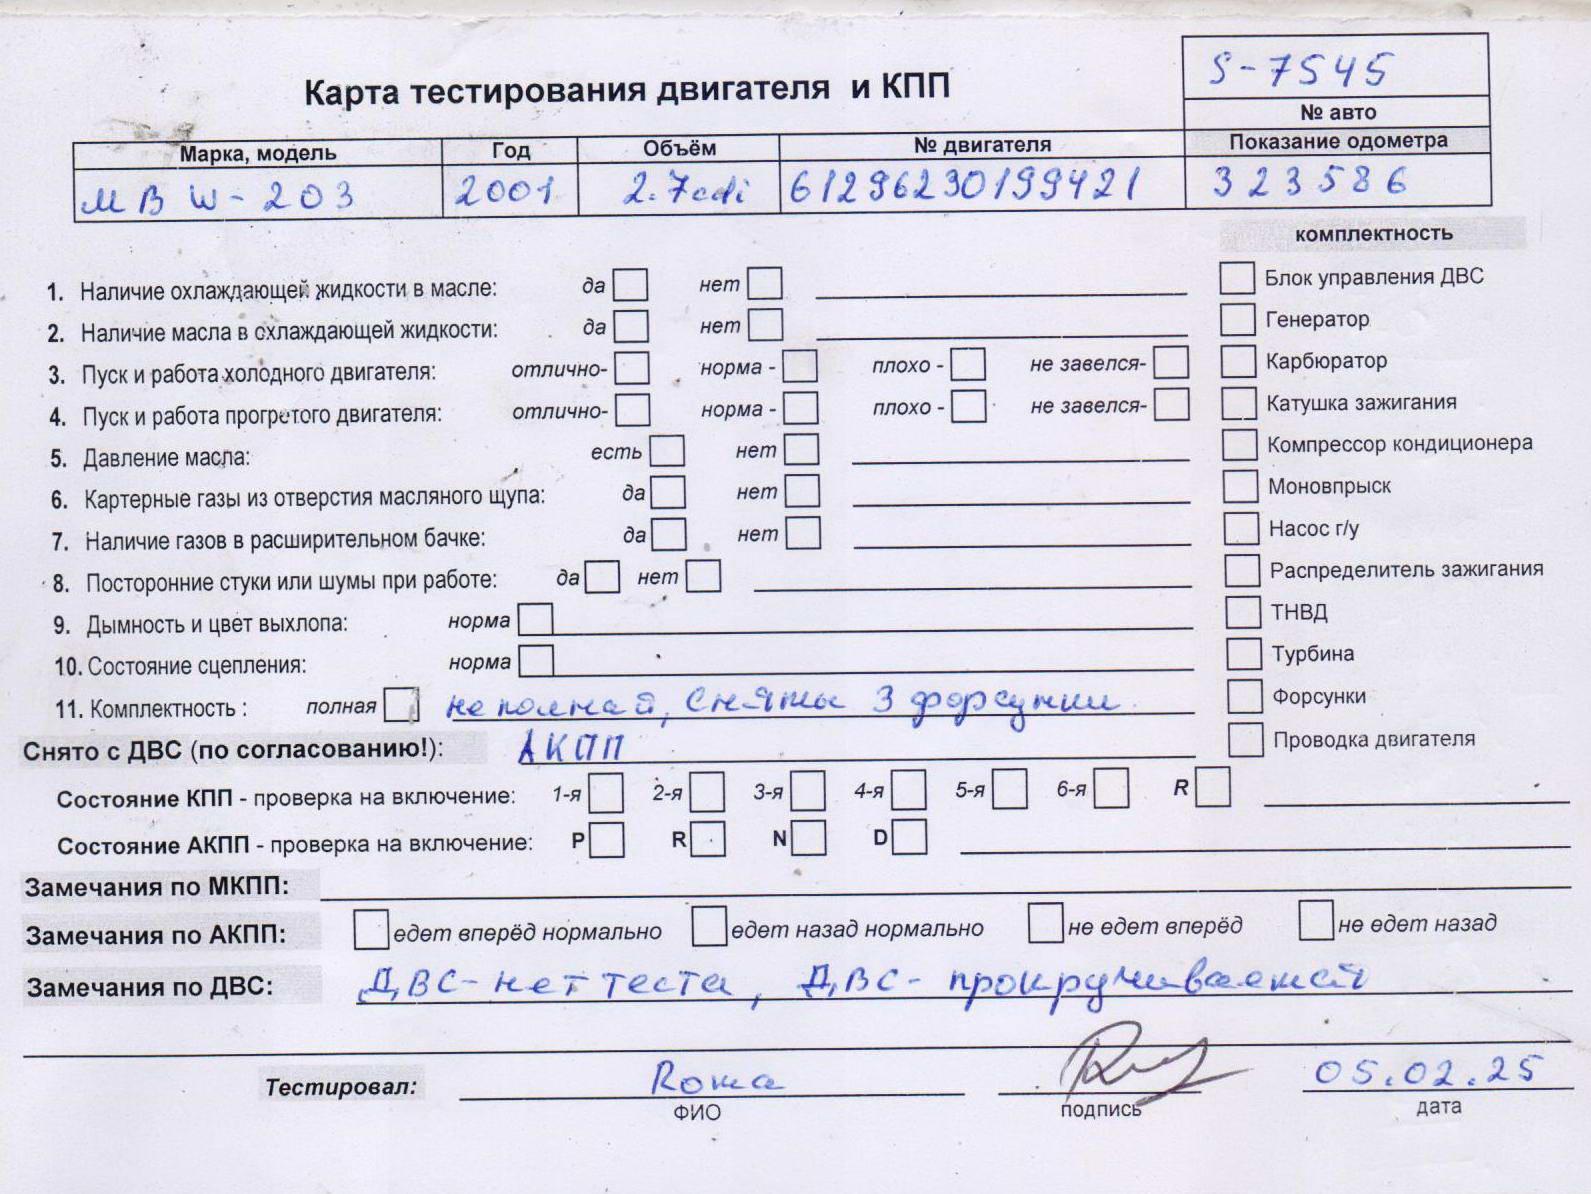 S-7545
Карта тестирования двигателя и КПП
№ авто
Марка, модель Год Объём № двигателя Показание одометра
MB W-203 2001 2.7cdi 61296230199421 323586
комплектность
1. Наличие охлаждающей жидкости в масле: да нет Блок управления ДВС
2. Наличие масла в охлаждающей жидкости: да нет Генератор
3. Пуск и работа холодного двигателя: отлично- норма - плохо - не завелся- Карбюратор
4. Пуск и работа прогретого двигателя: отлично- норма - плохо - не завелся- Катушка зажигания
5. Давление масла: есть нет Компрессор кондиционера
6. Картерные газы из отверстия масляного щупа: да нет Моновпрыск
7. Наличие газов в расширительном бачке: да нет Насос г/у
8. Посторонние стуки или шумы при работе: да нет Распределитель зажигания
9. Дымность и цвет выхлопа: норма ТНВД
10. Состояние сцепления: норма Турбина
11. Комплектность : полная не полная, сняты 3 форсунки Форсунки
Снято с ДВС (по согласованию!): АКПП Проводка двигателя
Состояние КПП - проверка на включение: 1-я 2-я 3-я 4-я 5-я 6-я R
Состояние АКПП - проверка на включение: P R N D
Замечания по МКПП:
Замечания по АКПП: едет вперёд нормально едет назад нормально не едет вперёд не едет назад
Замечания по ДВС: ДВС- нет теста, ДВС- прокручивается
Тестировал: Рома 05.02.25
ФИО подпись дата